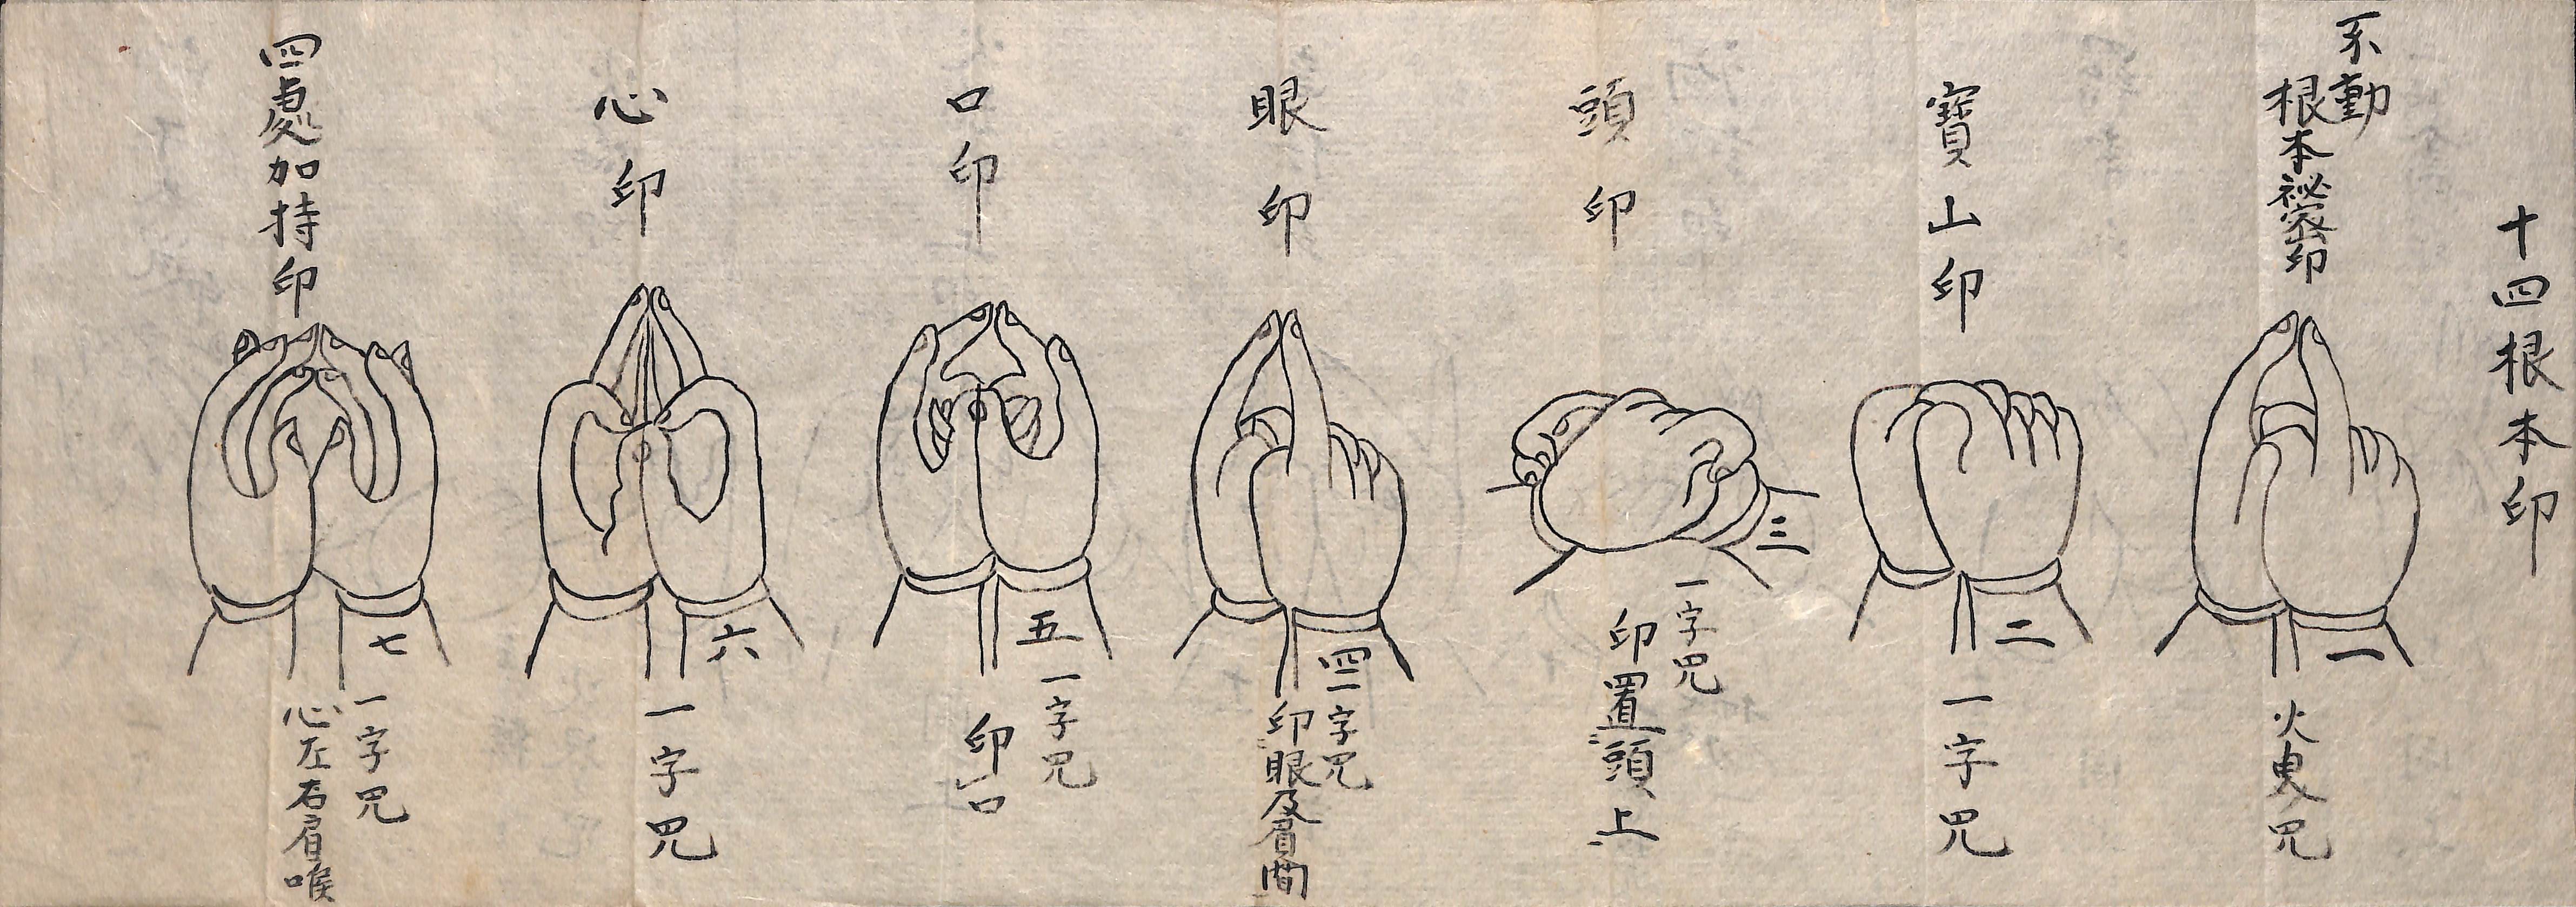 十四根本印
不動
根本祕密印
一
火曳咒
寶山印
二
一字咒
頭印
三
一字咒
印置頭上
眼印
四
一字咒
印眼及眉間
口印
五
一字咒
印口
心印
六
一字咒
四處加持印
七
一字咒
心左右肩喉